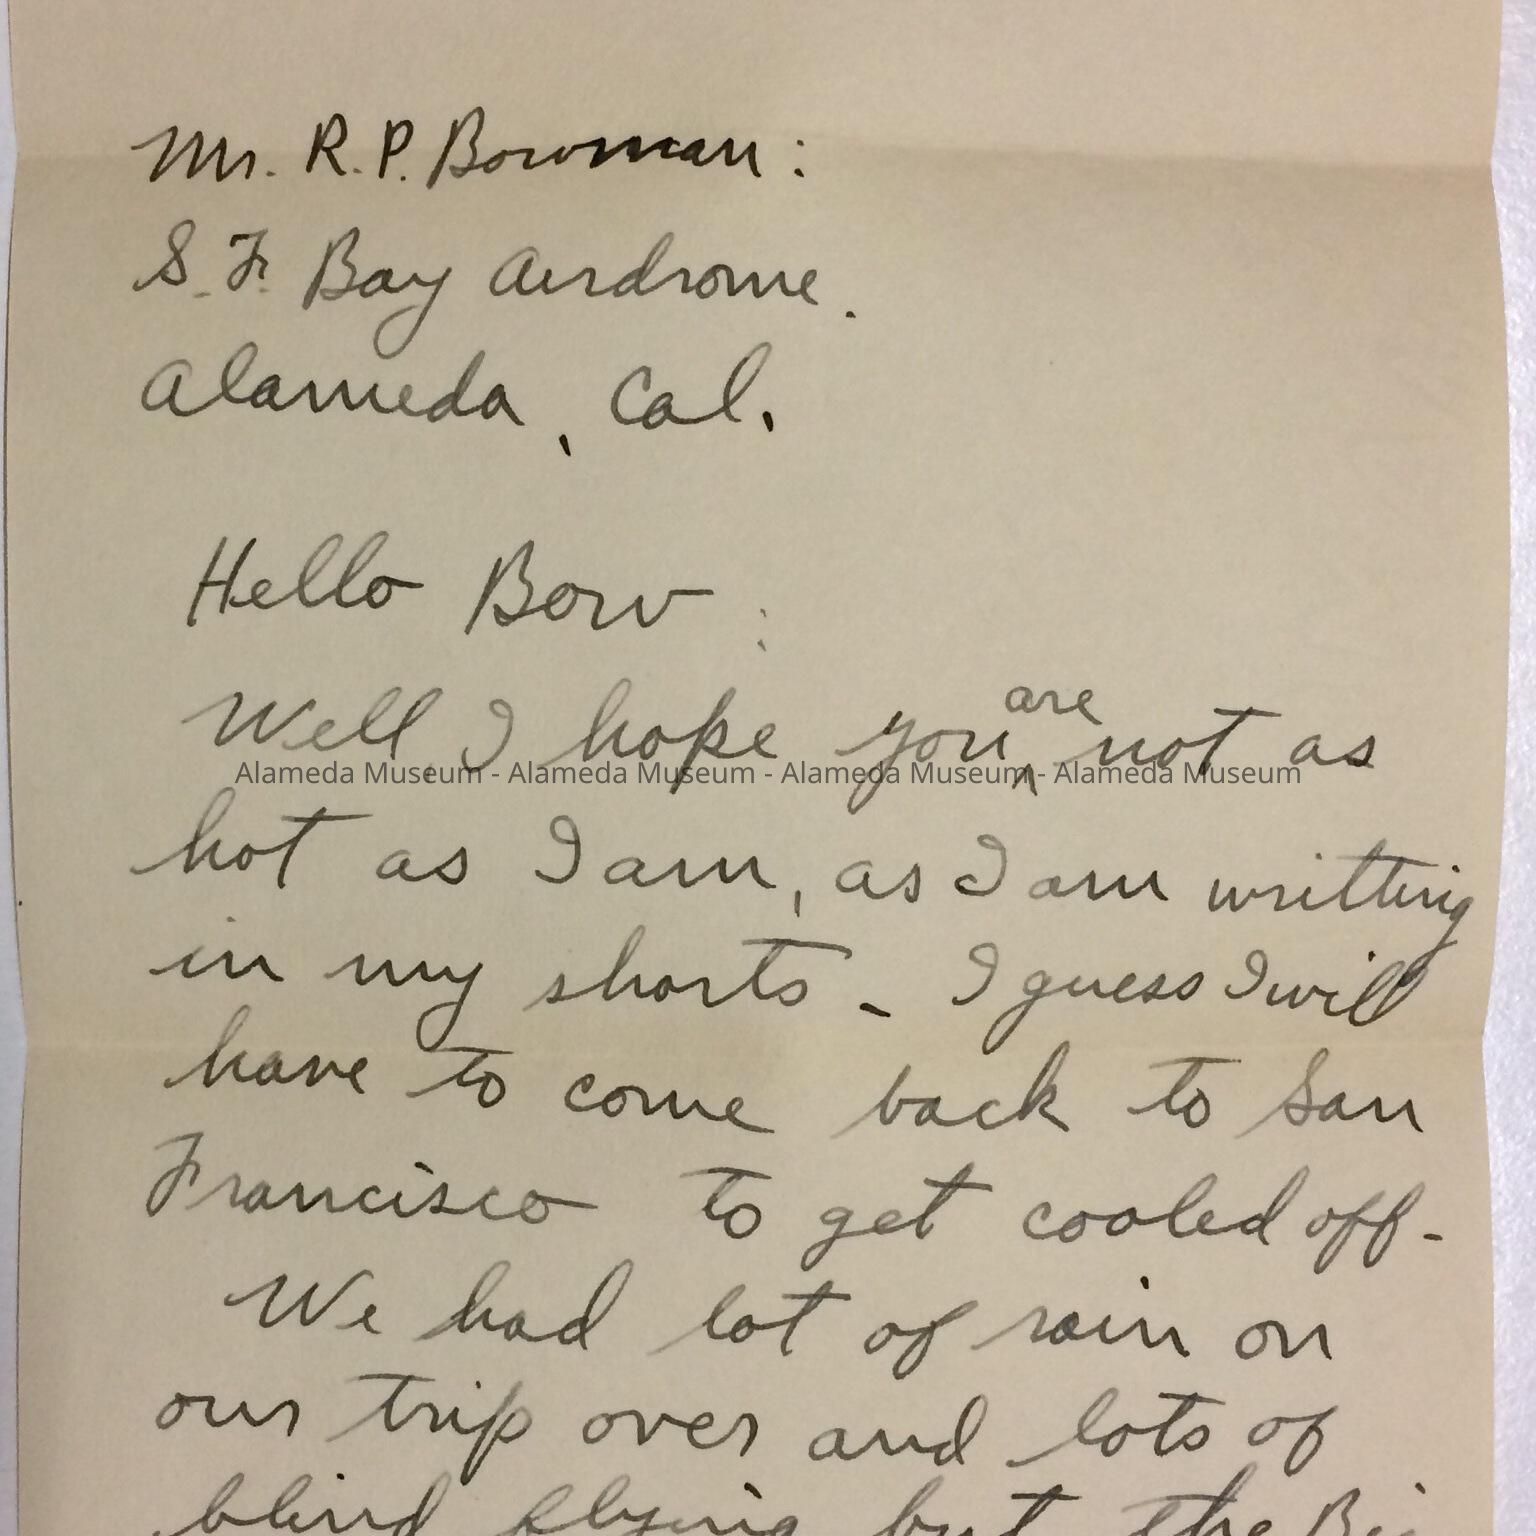 Mr. R.P. Bowman:
S.F. Bay Airdrome.
Alameda, Cal.
Hello Bow:
Well I hope you are not as
Alameda Museum - Alameda Museum - Alameda Museum - Alameda Museum
hot as I am, as I am writting
in my shorts - I guess I will
have to come back to San
Francisco to get cooled off-
We had lot of rain on
our trip over and lots of
blind flying but the